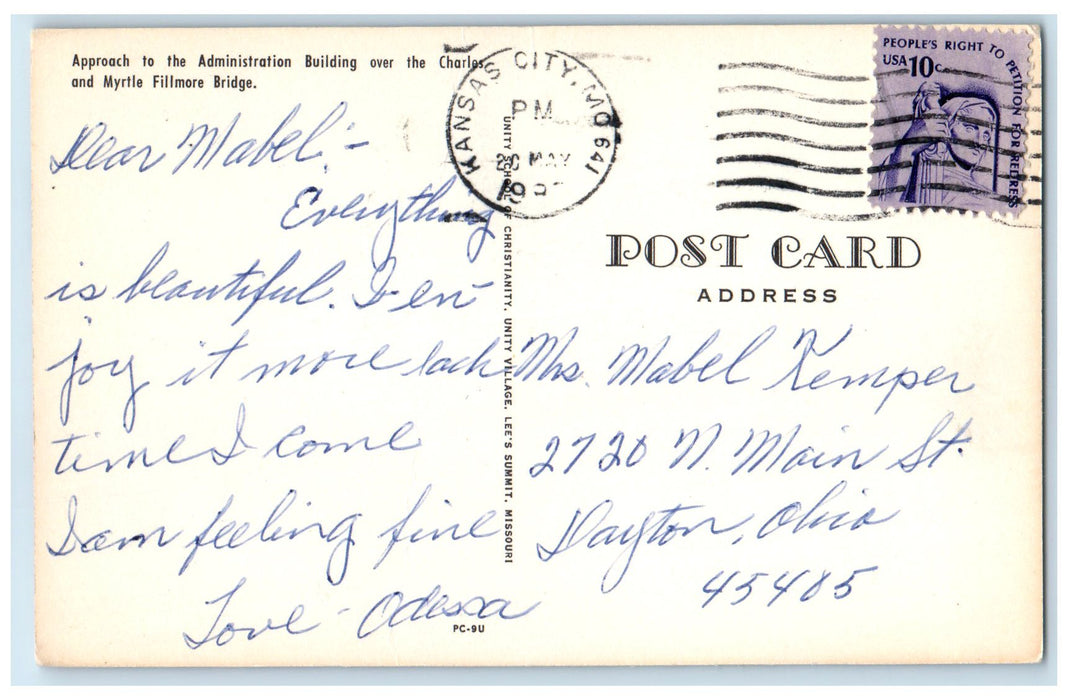 Approach to the Administration Building over the Charles
and Myrtle Fillmore Bridge.
Dear Mabel:-
Everything
is beautiful. I en-
joy it more each
time I come
I am feeling fine
Love - Odessa
PC-9U
UNITY SCHOOL OF CHRISTIANITY, UNITY VILLAGE, LEE'S SUMMIT, MISSOURI
KANSAS CITY, MO 641
PM
MAY
PEOPLE'S RIGHT TO PETITION FOR REDRESS
USA 10c
POST CARD
ADDRESS
Mrs. Mabel Kemper
2720 N. Main St.
Dayton, Ohio
45405